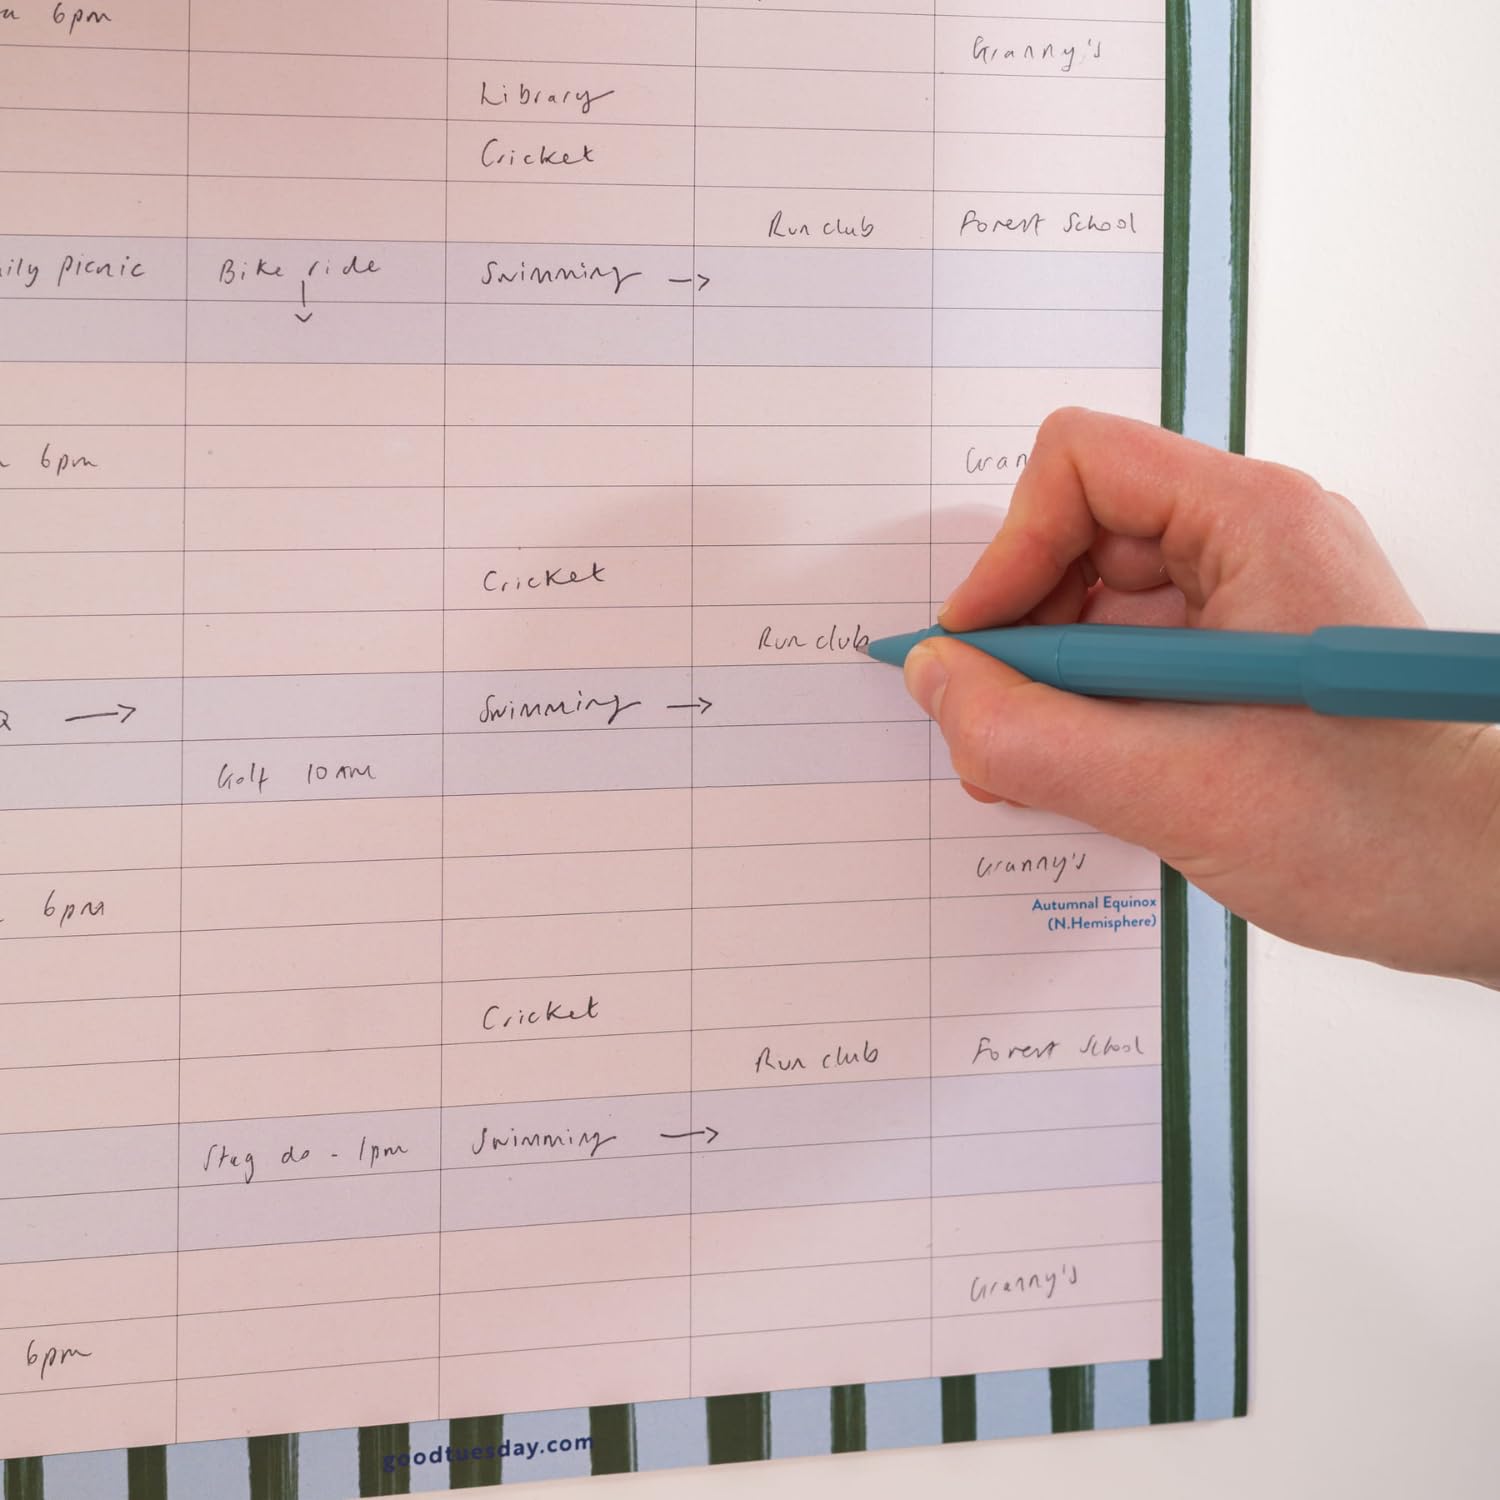 6pm
Granny's
Library
Cricket
Run club
Forest School
picnic
Bike ride
Swimming →
6pm
Gran
Cricket
Run club
→
Swimming →
Golf 10 AM
Granny's
6pm
Autumnal Equinox
(N.Hemisphere)
Cricket
Run club
Forest School
Stag do - 1pm
Swimming →
Granny's
6pm
goodtuesday.com